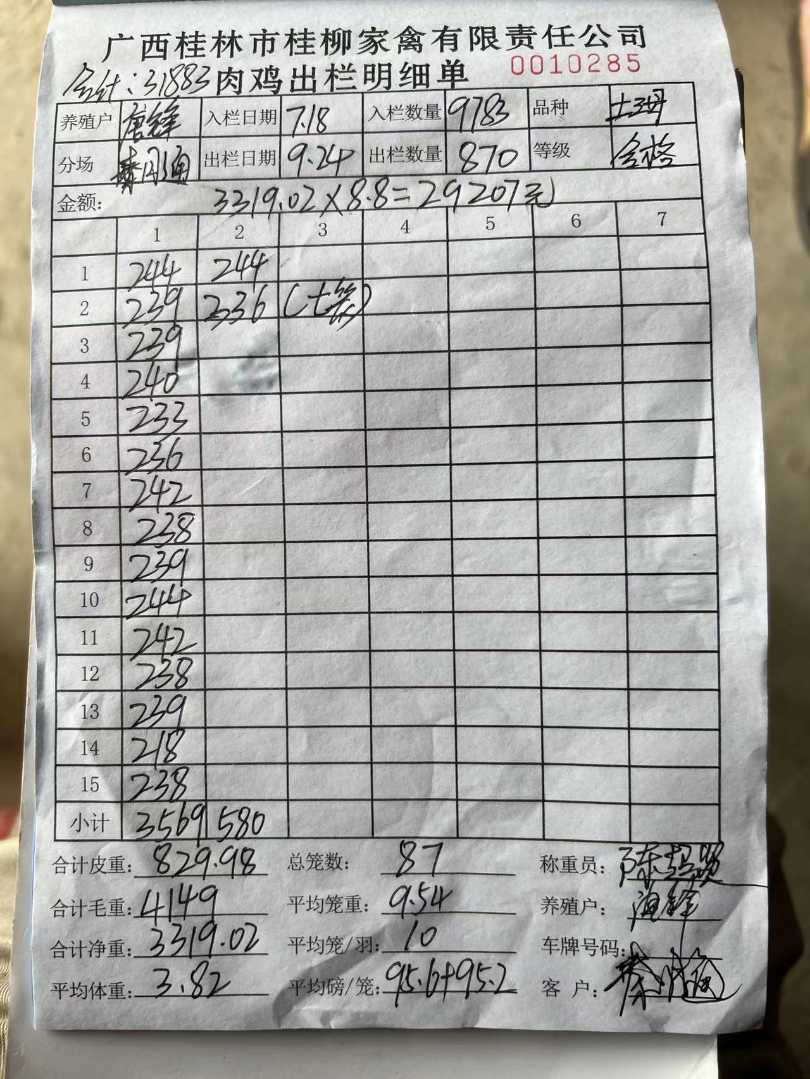 广西桂林市桂柳家禽有限责任公司
合计:31883 肉鸡出栏明细单 0010285
养殖户 唐锋 入栏日期 7.18 入栏数量 9783 品种 土2号
分场 出栏日期 9.24 出栏数量 870 等级 合格
金额: 3319.02×8.8=29207元
1 2 3 4 5 6 7
1 244 244
2 239 336 (七笼)
3 239
4 240
5 233
6 236
7 242
8 238
9 239
10 244
11 242
12 238
13 239
14 218
15 238
小计 3569 580
合计皮重: 829.98 总笼数: 87 称重员:
合计毛重: 4149 平均笼重: 9.54 养殖户:
合计净重: 3319.02 平均笼/羽: 10 车牌号码:
平均体重: 3.82 平均磅/笼: 95.6+95.2 客 户: